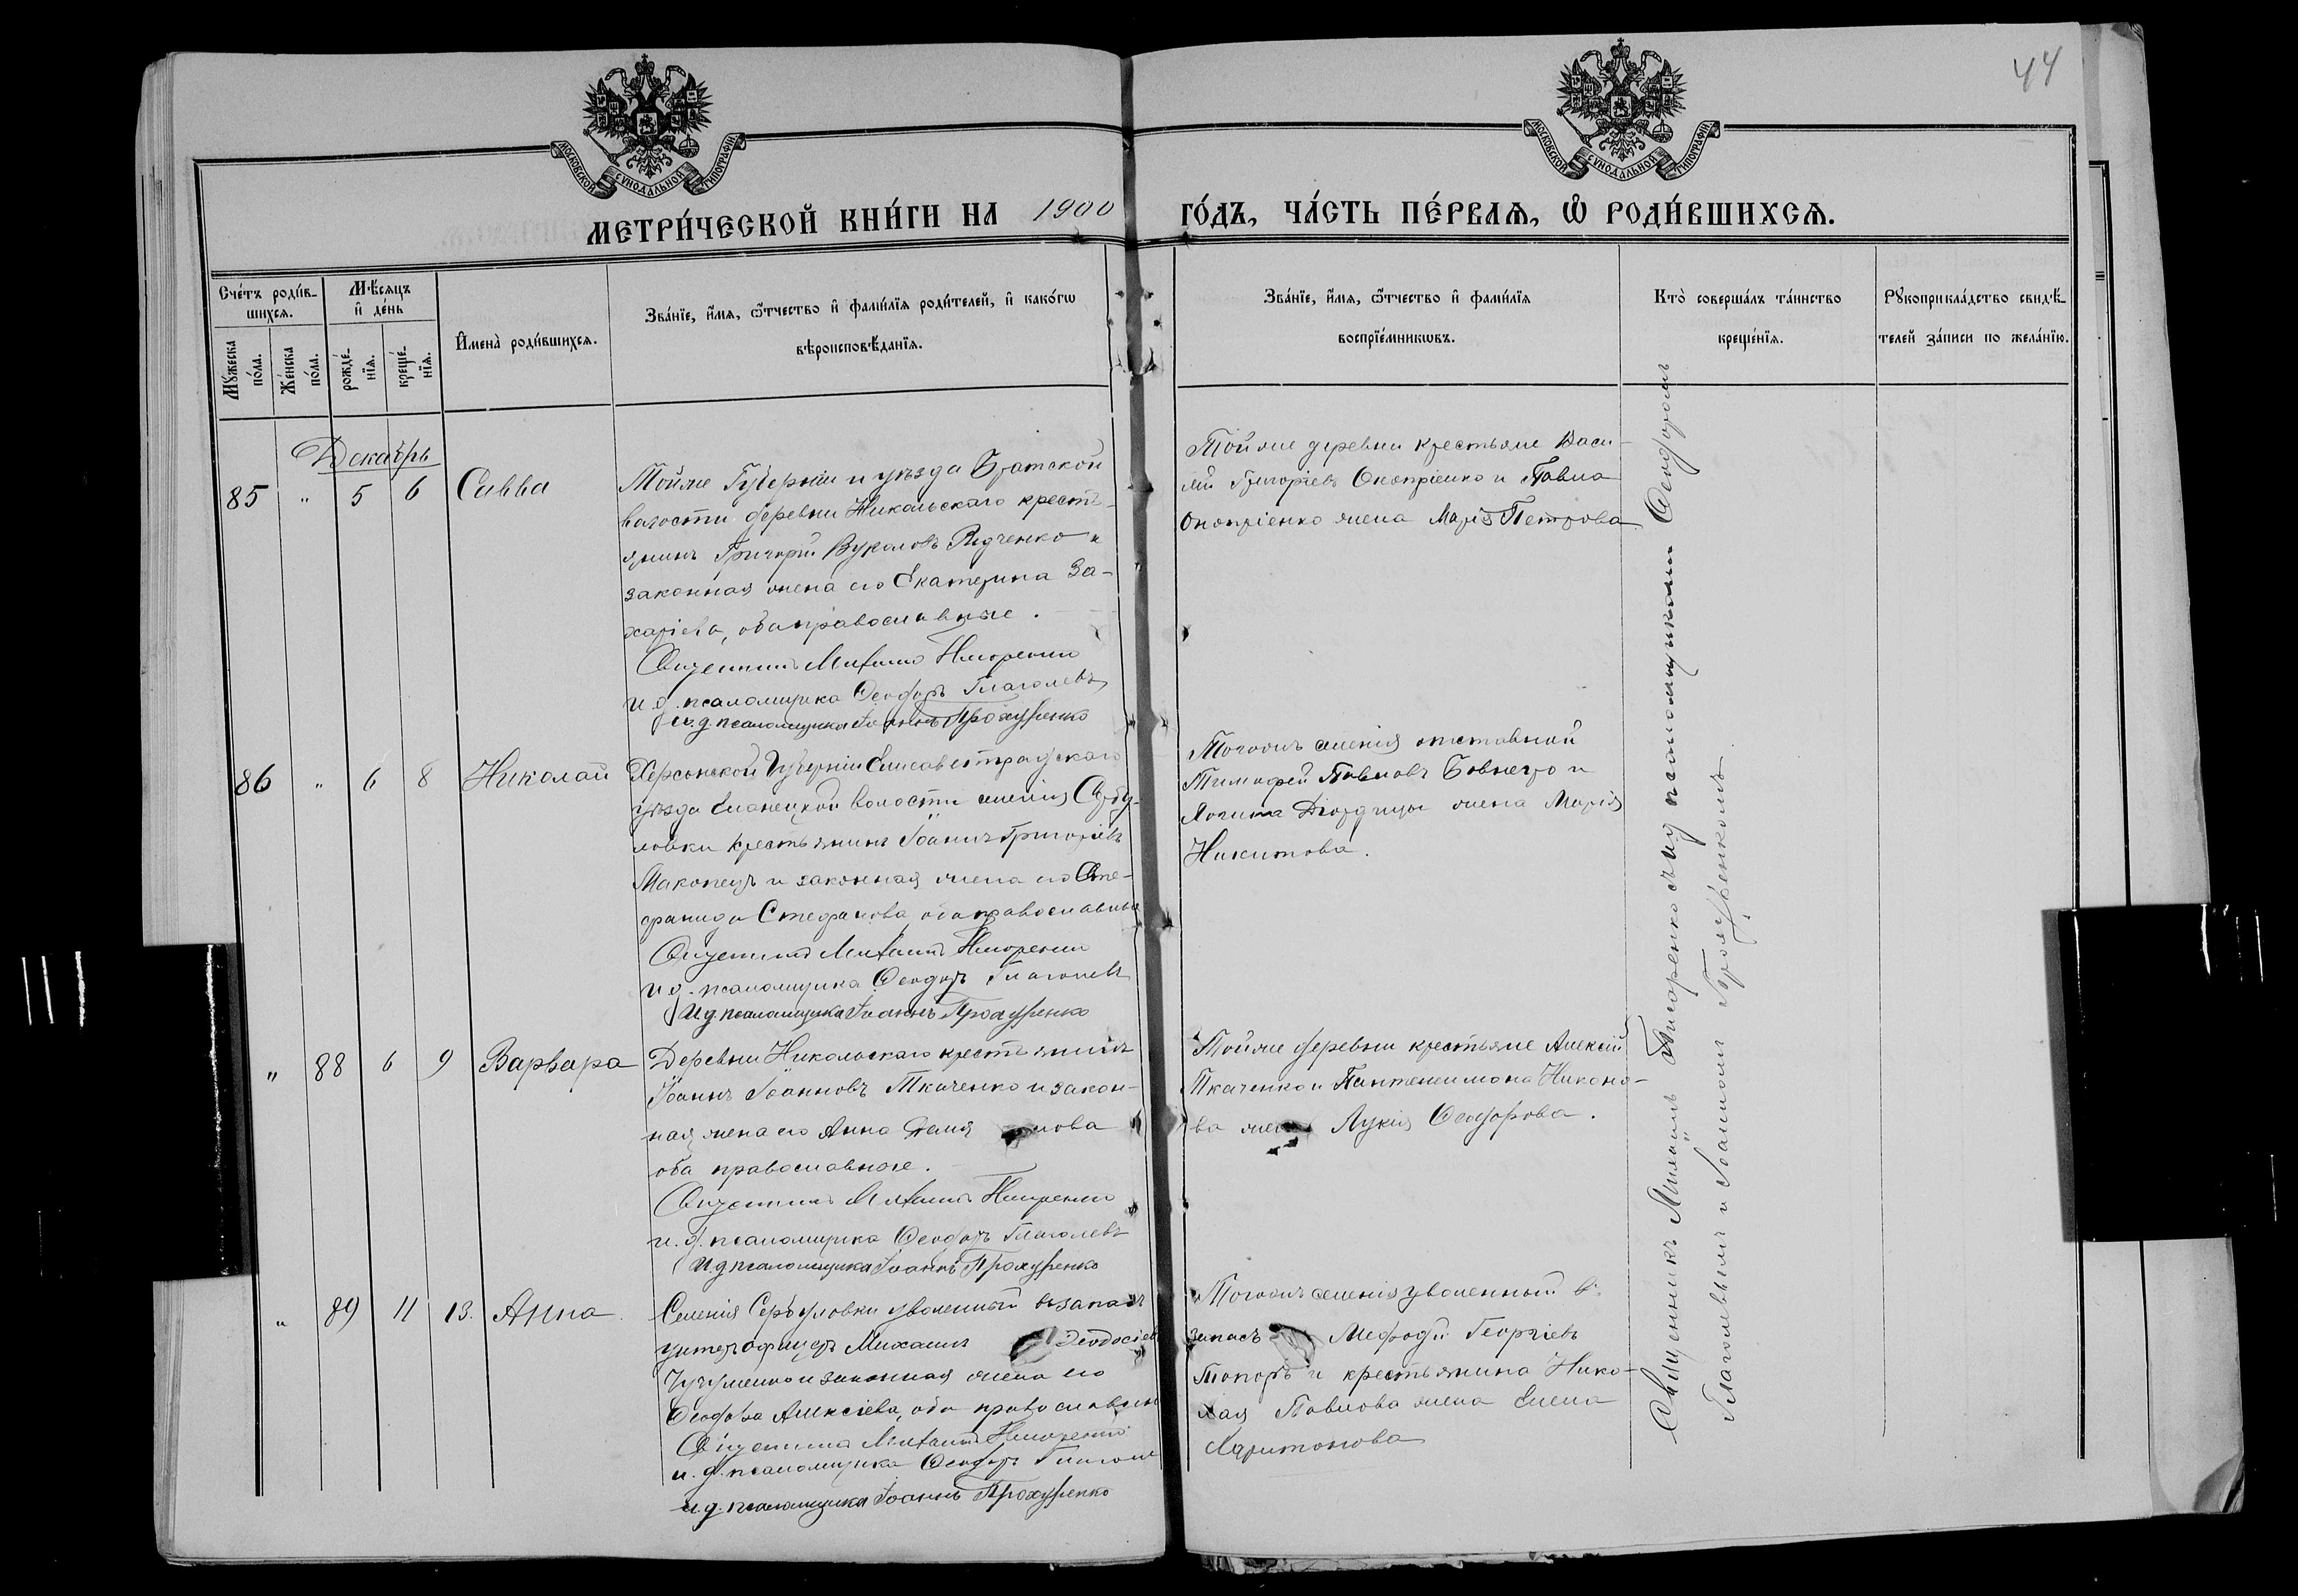 44
МОСКОВСКОЙ СУНОДАЛЬНОЙ ТИПОГРАФІИ
МОСКОВСКОЙ СУНОДАЛЬНОЙ ТИПОГРАФІИ
МЕТРИ́ЧЕСКОЙ КНИ́ГИ НА 1900 ГО́ДЪ, ЧА́СТЬ ПЕ́РВАѦ, Ѡ҆ РОДИ́ВШИХСѦ.
Сче́тъ роди́в-
шихсѧ.
Мꙋ́жеска
по́ла.
Же́нска
по́ла.
Мѣ́сѧцъ
и҆ де́нь
рожде́-
нїѧ.
креще́-
нїѧ.
И҆мена̀ роди́вшихсѧ.
Зва́нїе, и҆́мѧ, ѻ҆́тчество и҆ фами́лїѧ роди́телей, и҆ како́гѡ
вѣроисповѣ́данїѧ.
Зва́нїе, и҆́мѧ, ѻ҆́тчество и҆ фами́лїѧ
воспрїе́мникѡвъ.
Кто̀ соверша́лъ та́инство
креще́нїѧ.
Рꙋкоприкла́дство свидѣ́-
телей за́писи по жела́нїю.
Декабрь
85 " 5 6 Савва
Тойже Губерніи и уѣзда Братской
волости деревни Никольскаго кресть-
янинъ Григорій Вуколовъ Редченко и
законная жена его Екатерина За-
харіева, оба православные.
Священникъ Михаилъ
и. д. псаломщика Ѳеодоръ Глаголевъ
и. д. псаломщика Іоаннъ Прохуренко
Тойже деревни крестьяне Васи-
лій Григоріевъ Оноприенко и Павла
Оноприенко жена Марія Петрова
86 " 6 8 Николай
Херсонской Губерніи Елисаветградскаго
уѣзда Еланецкой волости селенія Сербу-
ловки крестьянинъ Іоаннъ Григоріевъ
Маконецъ и законная жена его Сте-
фанида Стефанова, оба православные
Священникъ Михаилъ
и. д. псаломщика Ѳеодоръ Глаголевъ
И. д. псаломщика Іоаннъ Прохуренко
Тогожъ селенія отставной
Тимофей Павловъ и
Логина жена Марія
Никитова.
" 88 6 9 Варвара
Деревни Никольскаго крестьянинъ
Іоаннъ Іоанновъ Ткаченко и закон-
ная жена его Анна
оба православные.
Священникъ Михаилъ
и. д. псаломщика Ѳеодоръ Глаголевъ
И. д. псаломщика Іоаннъ Прохуренко
Тойже деревни крестьяне Алексій
Ткаченко и Пантелеимона Никоно-
ва жена Лукія Ѳеодорова.
" 89 11 13. Анна.
Селенія Сербуловки уволенный въ запасъ
унтеръ офицеръ Михаилъ Ѳеодосіевъ
и законная жена его
Алексіева, оба православны
Священникъ Михаилъ
и. д. псаломщика Ѳеодоръ
и. д. псаломщика Іоаннъ Прохуренко
Тогожъ селенія уволенный въ
запасъ Мефодій Георгіевъ
Топоръ и крестьянина Нико-
лая Павлова жена Елена
Харитонова
Священникъ Михаилъ съ и. д. псаломщиками Ѳеодоромъ
Глаголевымъ и Іоанномъ Прохуренкомъ.